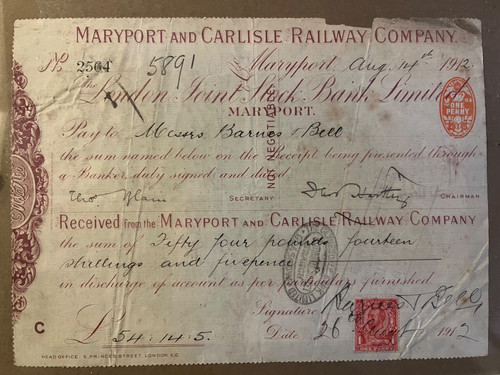 MARYPORT AND CARLISLE RAILWAY COMPANY.
No 2564 5891 Maryport, Aug. 14th 1912
The London Joint Stock Bank Limited
MARYPORT.
ONE PENNY
Pay to Messrs Barnes & Bell
the sum named below on the Receipt being presented through
a Banker duly signed and dated
NOT NEGOTIABLE
SECRETARY CHAIRMAN
Received from the MARYPORT AND CARLISLE RAILWAY COMPANY
the sum of Fifty four pounds fourteen
shillings and fivepence
in discharge of account as per particulars furnished.
Signature Barnes & Bell
£ 54:14:5. Date 26 August 1912
C
HEAD OFFICE: 5, PRINCES STREET, LONDON E.C.